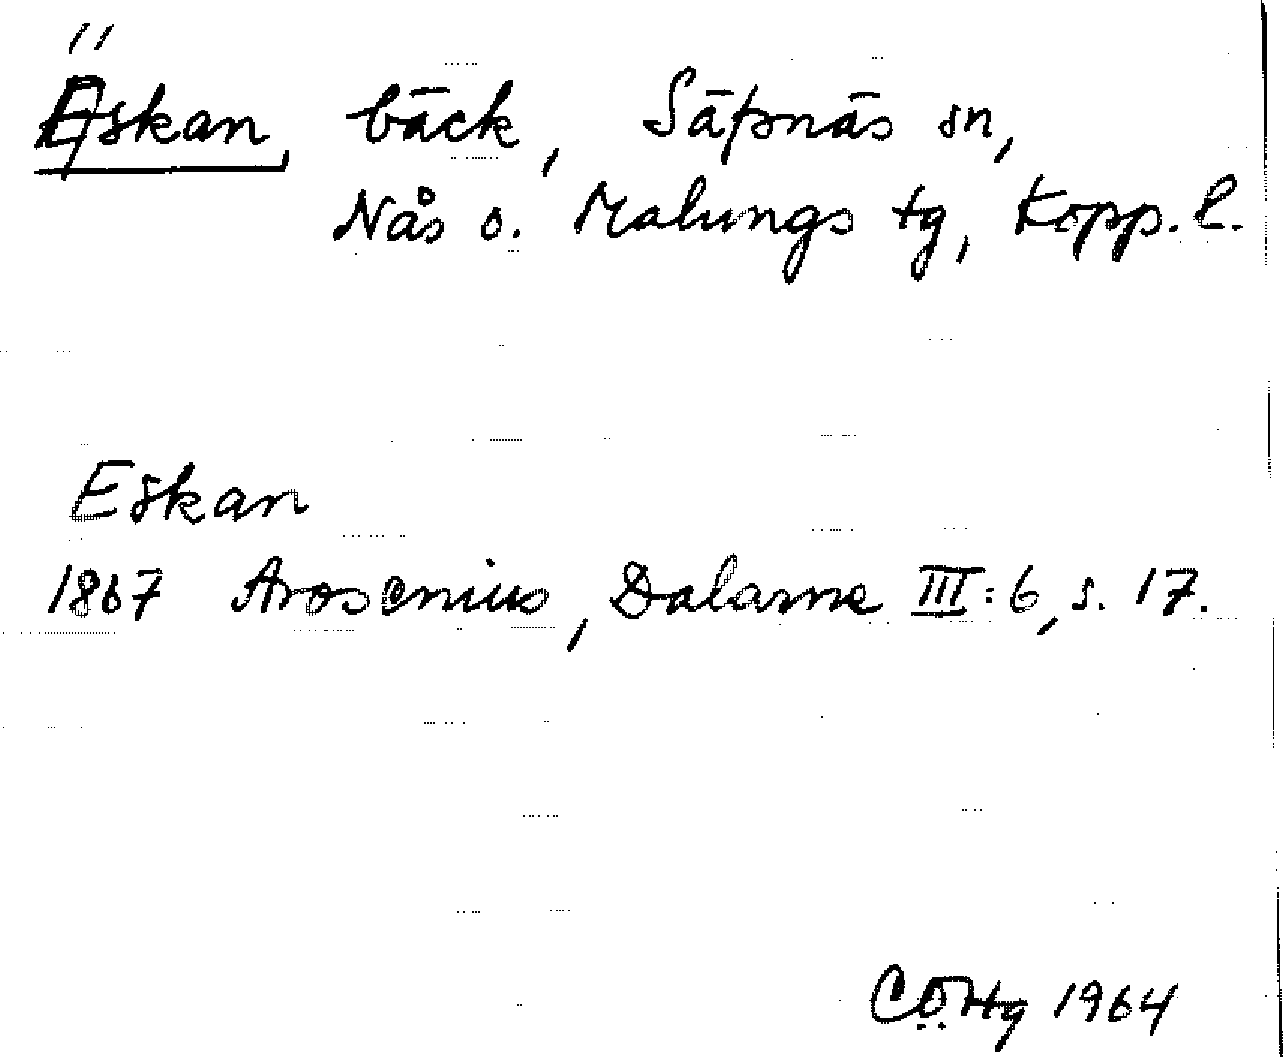 Äskan, bäck, Säfsnäs sn,
Nås o. Malungs tg, Kopp. l.
Eskan
1867 Arosenius, Dalarne III:6, s. 17.
CÖHg 1964